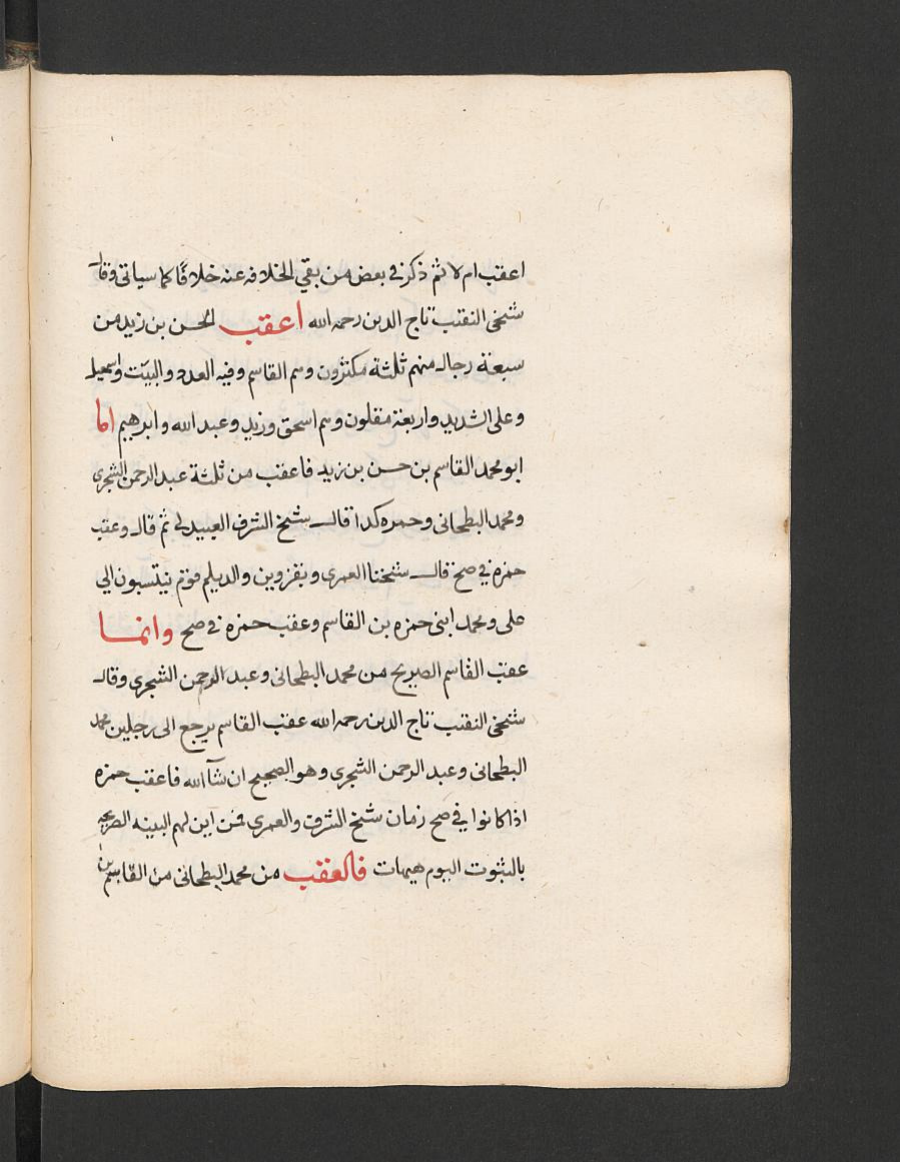 اعقب ام لا ثم ذكر في بعض من بقي الخلافه عنه خلافا كما سياتى وقال
شيخى النقيب تاج الدين رحمه الله اعقب الحسن بن زيد من
سبعة رجال منهم ثلثة مكثرون وهم القاسم وفيه العدد والبيت واسمعيل
وعلى الشديد واربعة مقلون وهم اسحق وزيد وعبد الله وابرهيم اما
ابو محمد القاسم بن حسن بن زيد فاعقب من ثلثة عبد الرحمن الشجرى
ومحمد البطحانى وحمزه كذا قال شيخ الشرف العبيدلى ثم قال وعقب
حمزه في صح قال شيخنا العمرى وبقزوين والديلم قوم ينتسبون الى
على ومحمد ابنى حمزه بن القاسم وعقب حمزه في صح وانما
عقب القاسم الصريح من محمد البطحانى وعبد الرحمن الشجرى وقال
شيخى النقيب تاج الدين رحمه الله عقب القاسم يرجع الى رجلين محمد
البطحانى وعبد الرحمن الشجرى وهو الصحيح ان شآ الله فاعقب حمزه
اذا كانوا في صح زمان شيخ الشرف والعمرى فمن اين لهم البينه الصريحه
بالثبوت اليوم هيهات فالعقب من محمد البطحانى من القاسم بن